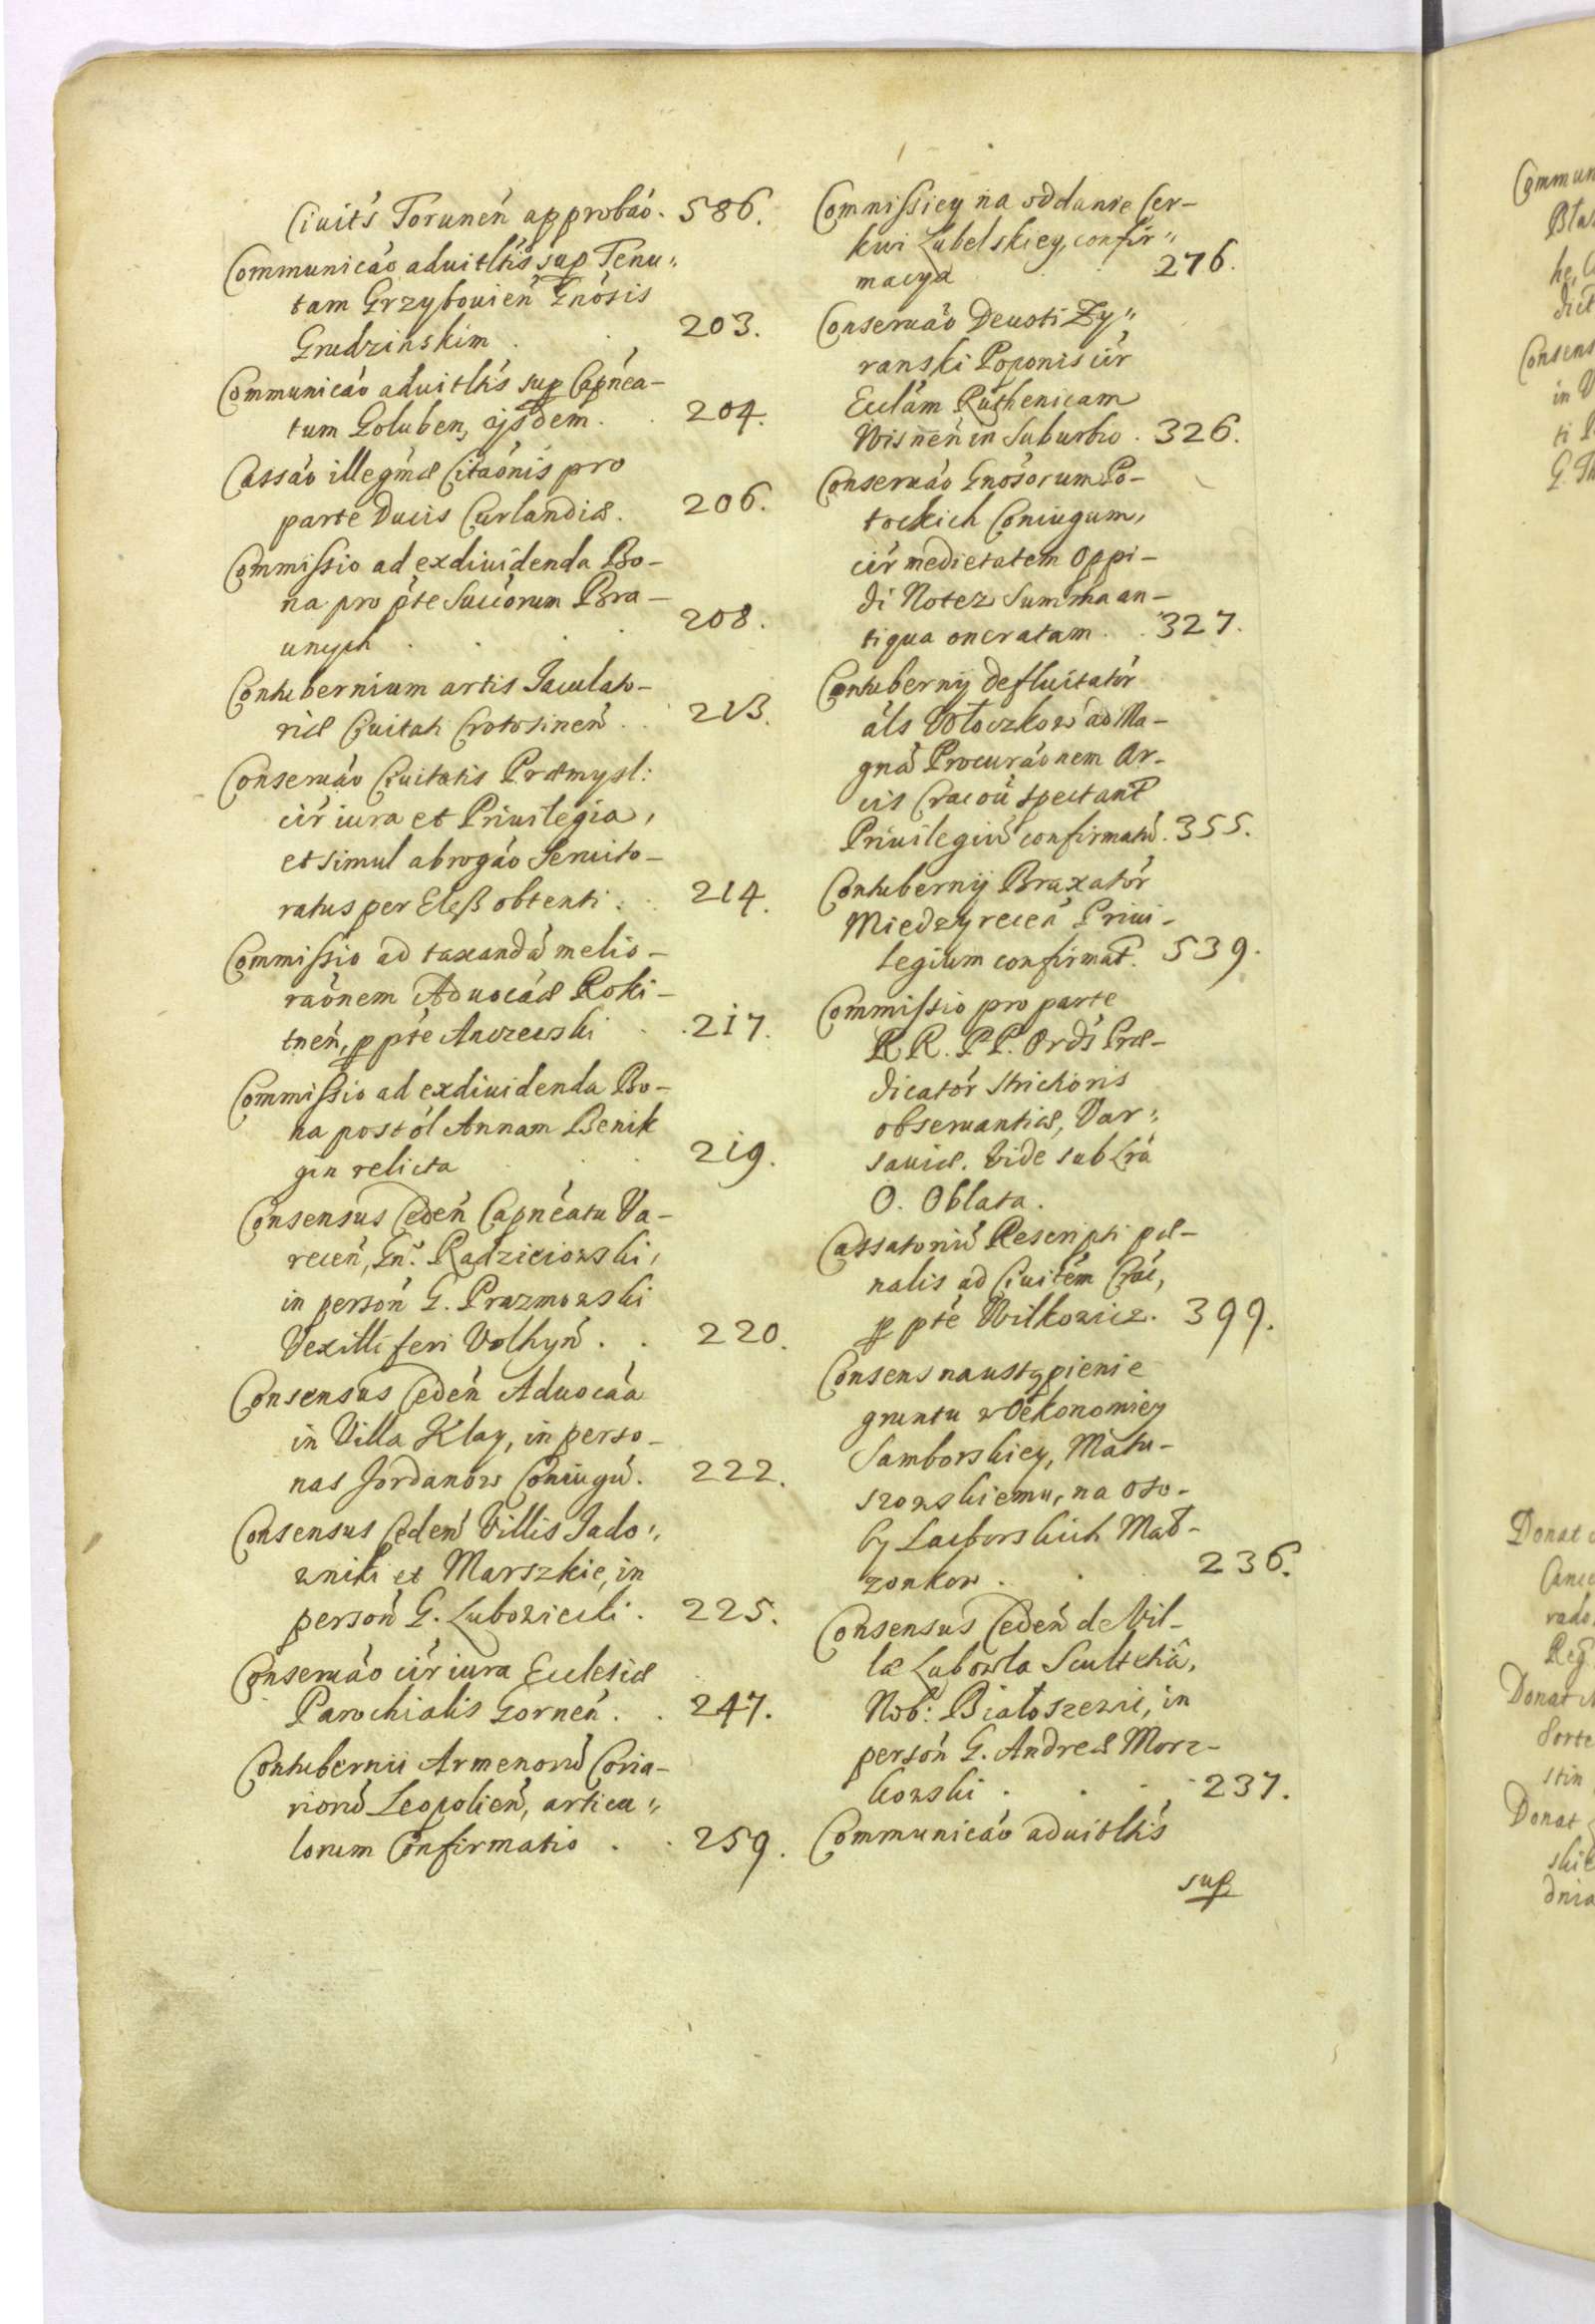 Ciuit's Torunen̄ approbāo. 586.
Communicāo aduitltis sup Tenu„
tam Grzybouien̄ Gnōsis
Grudzinskim . 203.
Communicāo aduitltis sup Capnea-
tum Goluben, ejsdem . 204.
Cassāo illegmæ Citāonis pro
parte Ducis Curlandiæ. 206.
Commissio ad exdiuidenda Bo-
na pro pte Succorum Bra-
unych . . . 208.
Contubernium artis Iaculato-
riæ Ciuitati Crotosinen̄ . 213.
Conseruāo Ciuitatis Præmysl:
cir iura et Priuilegia,
et simul abrogāo Seruito-
ratus per Eleß obtenti . 214.
Commissio ad taxandā melio-
rāonem Aduocāæ Roki-
tnen̄, p pte Anczewski . 217.
Commissio ad exdiuidenda Bo-
na post ol Annam Benik
gin relicta . . 219.
Consensus Ceden̄ Capneatu Va-
recen̄, Gn̄. Radzieiowski,
in person̄ G. Prazmowski
Vexilliferi Volhyn̄ . . 220.
Consensus Ceden̄ Aduocāa
in Villa Klay, in perso-
nas Jordanow Coniugū. 222.
Consensus Ceden̄ Villis Jado„
wniki et Marszkie, in
person̄ G. Lubowiecki . 225.
Conseruāo cir iura Ecclesiæ
Parochialis Gornen̄ . . 247.
Contubernii Armenorū Coria-
riorū Leopolien̄, articu„
lorum Confirmatio . . 259.
Commissiey na oddanie Cer-
kwi Lubelskiey, confir„
macya . . 276.
Conseruāo Deuoti Zy„
ranski Poponis cir
Ecclām Ruthenicam
Wisnen̄ in Suburbio . 326.
Conseruāo Gnosorum Po-
tockich Coniugum,
cir medietatem Oppi-
di Notez Summa an-
tiqua oneratam . . 327.
Contubernij defluitatōr
als Włoczkow ad Ma-
gnā Procurāonem Ar-
cis Cracoū spectant
Priuilegiū confirmatū. 355.
Contubernij Braxatōr
Miedzyrecen̄ Priui-
legium confirmat. 539.
Commissio pro parte
R R. P P. Ordis Præ-
dicatōr Strictioris
obseruantiæ, Var„
sauiæ. Vide sub Lrā
O. Oblata.
Cassatoriū Rescripti pæ-
nalis ad Ciuitem Crac,
p pte Wilkowicz. 399.
Consens na ustąpienie
gruntu w Oekonomiey
Samborskiey, Matu-
szowskiemu, na oso-
by Lacborskich Mał-
zonkow . . 236.
Consensus Ceden̄ de Vil-
læ Lubowla Scultetiā,
Nob: Białoszewic, in
person̄ G. Andreæ Morz-
kowski . . . 237.
Communicāo aduitltis
sup